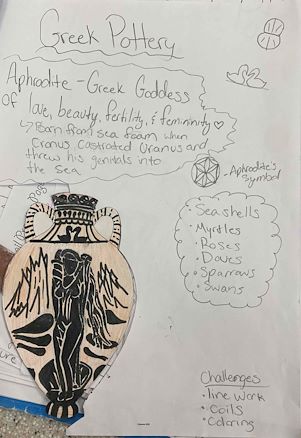 Greek Pottery
Aphrodite - Greek Goddess
of love, beauty, fertility, & femininity
Born from sea foam when
Cronus castrated Uranus and
threw his genitals into
the sea
- Aphrodite's
symbol
· Seashells
· Myrtles
· Roses
· Doves
· Sparrows
· Swans
Challenges
· line work
· Coils
· Coloring